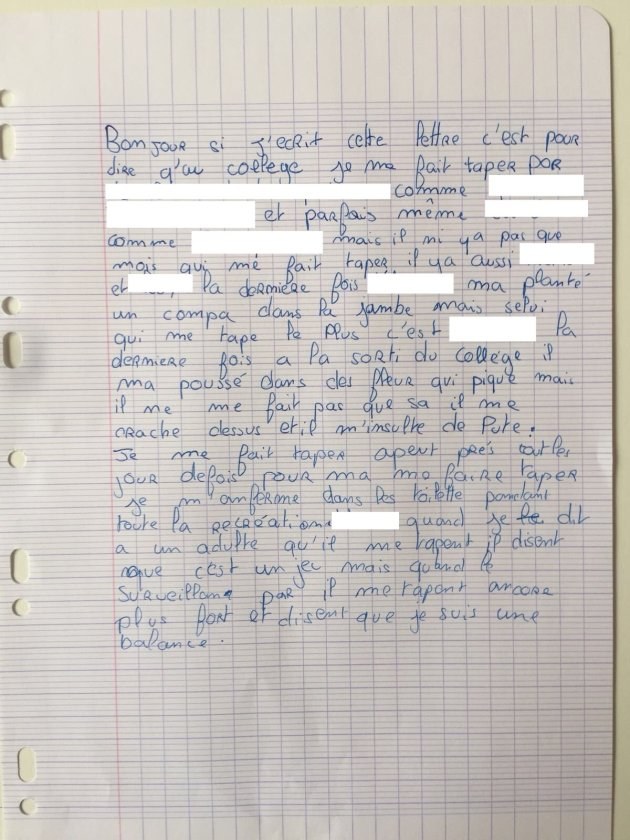 Bonjour si j'ecrit cette lettre c'est pour
dire q'au college je me fait taper par
comme
et parfois même
comme mais il ni ya pas que
mais qui me fait taper il ya aussi
et la dermière fois ma planté
un compa dans la jambe mais selui
qui me tape le plus c'est la
dermiere fois a la sorti du college il
ma poussé dans des fleur qui pique mais
il me me fait pas que sa il me
crache dessus et il m'insulte de Pute.
Je me fait taper apeut prés tout les
jour depois pour ma me faire taper
je m'anferme dans les toilette pandant
toute la recréation quand je le dit
a un adulte qu'il me tapent il disent
que c'est un jeu mais quand le
surveillant par il me tapent ancore
plus fort et disent que je suis une
balance.